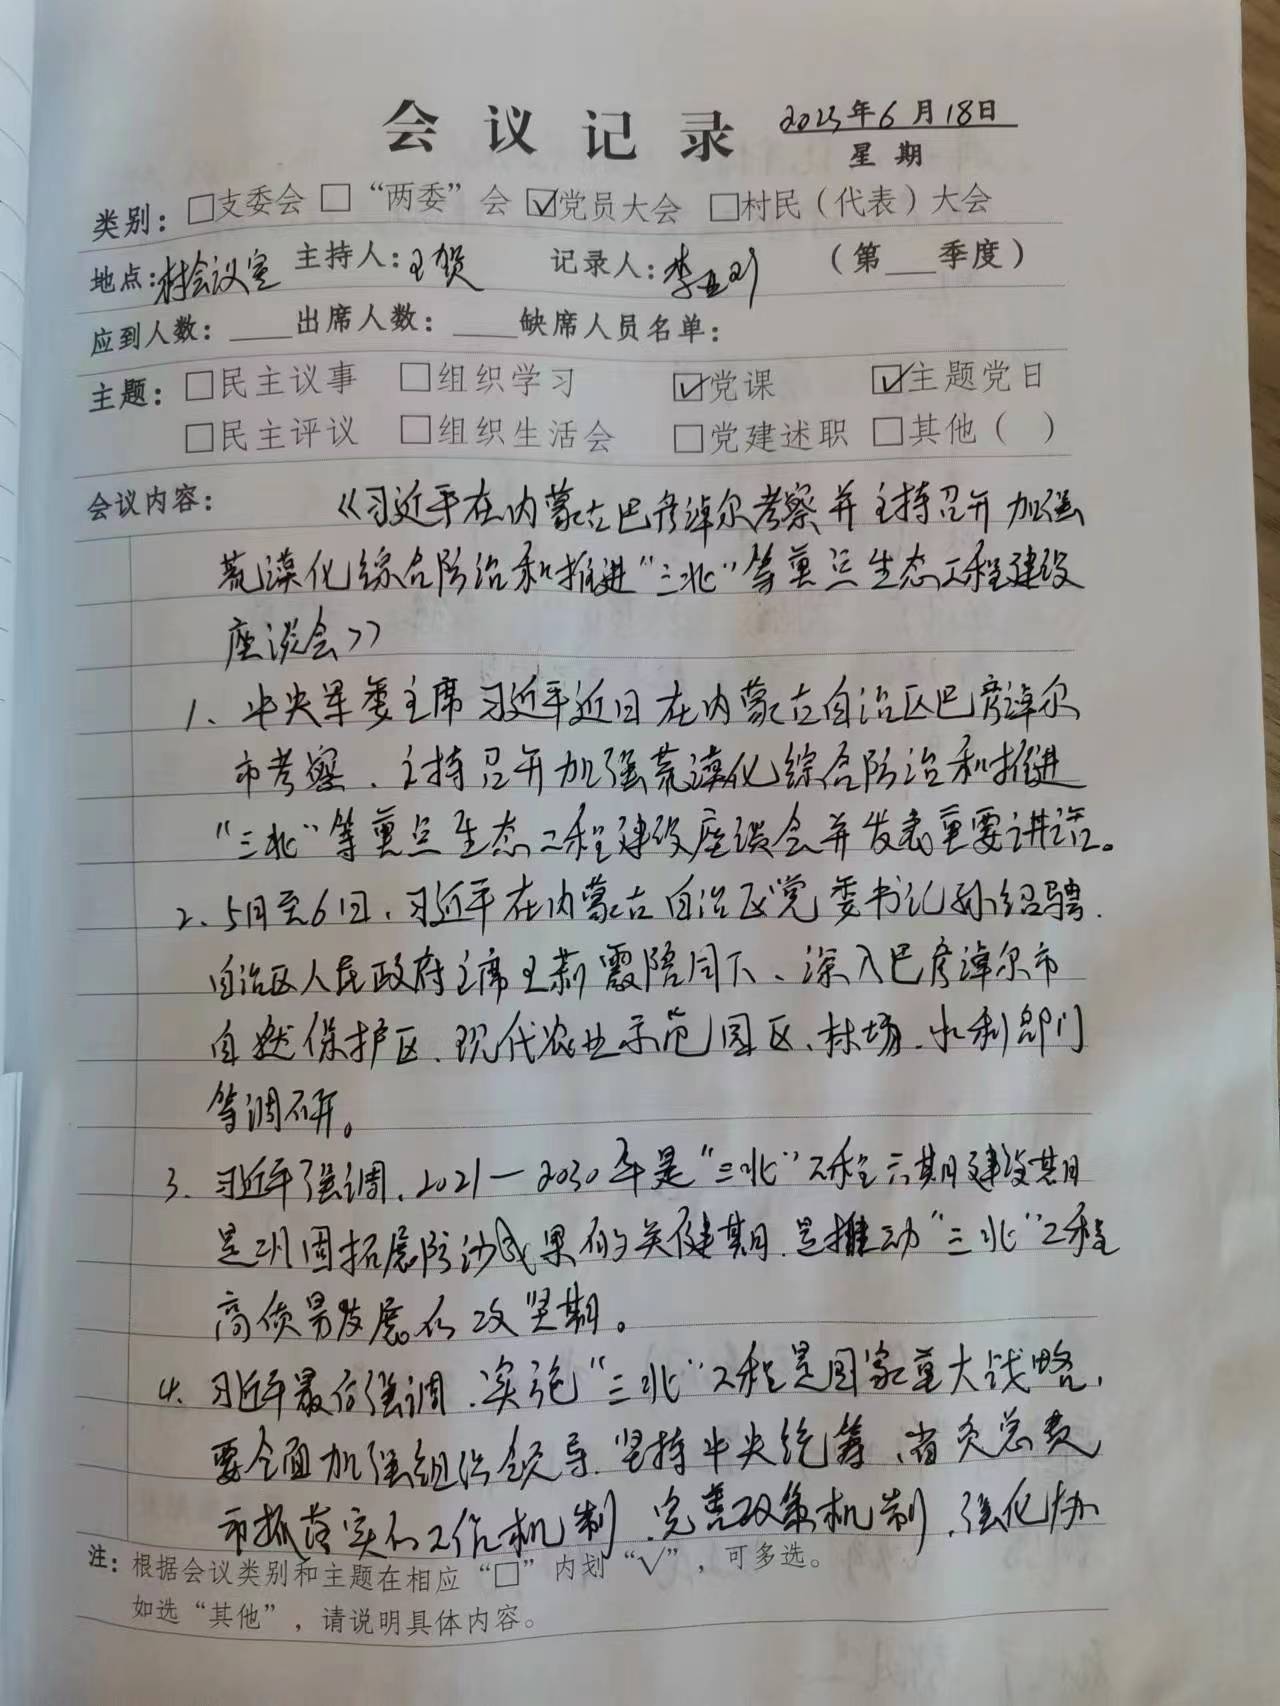 会议记录 2023年6月18日
星期
类别：□支委会 □“两委”会 ☑党员大会 □村民（代表）大会
地点：村会议室 主持人：王贺 记录人：李亚刚 （第___季度）
应到人数：____出席人数：____缺席人员名单：
主题：□民主议事 □组织学习 ☑党课 ☑主题党日
□民主评议 □组织生活会 □党建述职 □其他（ ）
会议内容： 《习近平在内蒙古巴彦淖尔考察并主持召开加强
荒漠化综合防治和推进“三北”等重点生态工程建设
座谈会》
1、中央军委主席习近平近日在内蒙古自治区巴彦淖尔
市考察、主持召开加强荒漠化综合防治和推进
“三北”等重点生态工程建设座谈会并发表重要讲话。
2、5日至6日，习近平在内蒙古自治区党委书记孙绍骋、
自治区人民政府主席王莉霞陪同下、深入巴彦淖尔市
自然保护区、现代农业示范园区、林场、水利部门
等调研。
3、习近平强调，2021—2030年是“三北”工程六期建设期
是巩固拓展防沙成果的关键期，是推动“三北”工程
高质量发展的攻坚期。
4、习近平最后强调，实施“三北”工程是国家重大战略，
要全面加强组织领导，坚持中央统筹、省负总责、
市抓落实的工作机制，完善政策机制，强化协
注：根据会议类别和主题在相应“□”内划“√”，可多选。
如选“其他”，请说明具体内容。